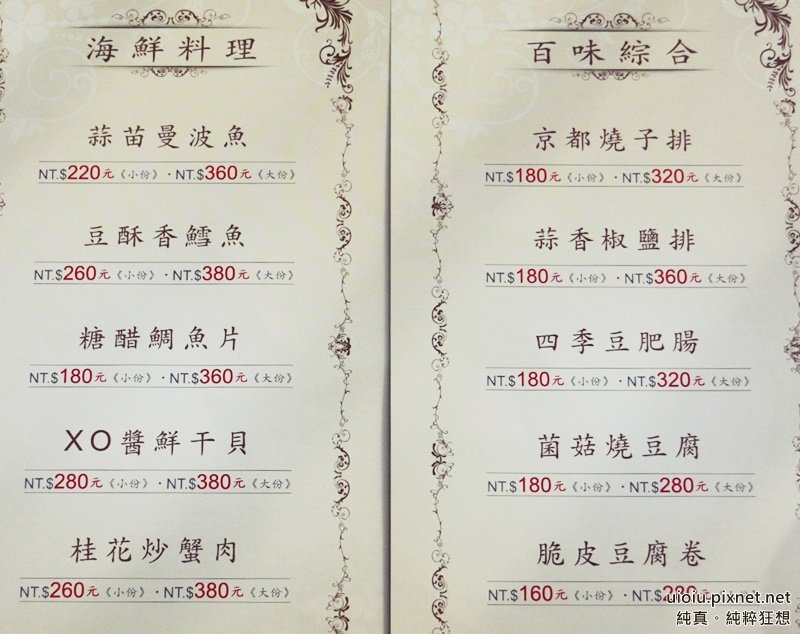 海鮮料理
蒜苗曼波魚
NT.$220元《小份》・NT.$360元《大份》
豆酥香鱈魚
NT.$260元《小份》・NT.$380元《大份》
糖醋鯛魚片
NT.$180元《小份》・NT.$360元《大份》
XO醬鮮干貝
NT.$280元《小份》・NT.$380元《大份》
桂花炒蟹肉
NT.$260元《小份》・NT.$380元《大份》
百味綜合
京都燒子排
NT.$180元《小份》・NT.$320元《大份》
蒜香椒鹽排
NT.$180元《小份》・NT.$360元《大份》
四季豆肥腸
NT.$180元《小份》・NT.$320元《大份》
菌菇燒豆腐
NT.$180元《小份》・NT.$280元《大份》
脆皮豆腐卷
NT.$160元《小份》・NT.$280元《大份》
uioiu.pixnet.net
純真。純粹狂想